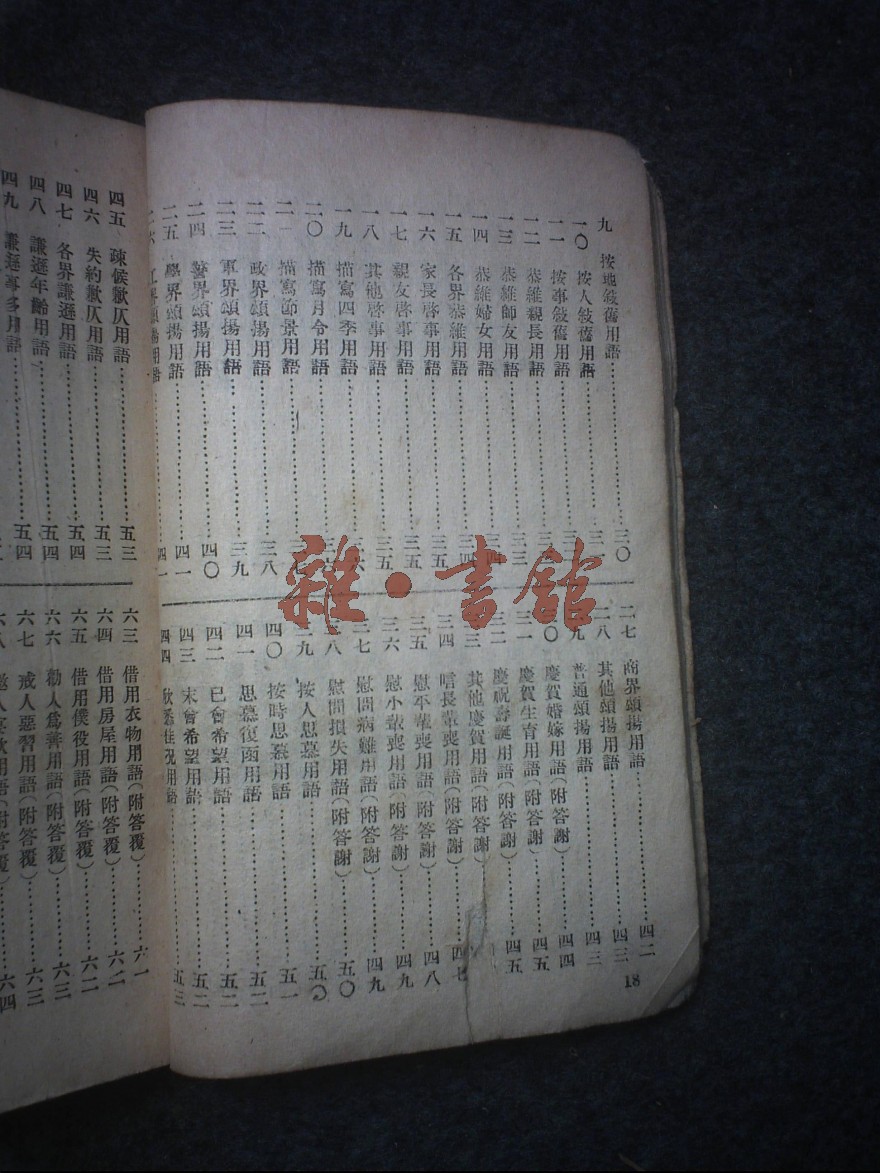 九 按地敍舊用語……三〇
一〇 按人敍舊用語……三一
一一 按事敍舊用語……
一二 恭維親長用語……
一三 恭維師友用語……三三
一四 恭維婦女用語……三四
一五 各界恭維用語……三四
一六 家長啓事用語……三五
一七 親友啓事用語……三五
一八 其他啓事用語……三五
一九 描寫四季用語……
二〇 描寫月令用語……
二一 描寫節景用語……
二二 政界頌揚用語……三八
二三 軍界頌揚用語……三九
二四 警界頌揚用語……四〇
二五 學界頌揚用語……四一
二六 工界頌揚用語……四一
二七 商界頌揚用語……四二
二八 其他頌揚用語……四三
二九 普通頌揚用語……四三
三〇 慶賀婚嫁用語(附答謝)……四四
三一 慶賀生育用語(附答謝)……四五
三二 慶祝壽誕用語(附答謝)……四五
三三 其他慶賀用語(附答謝)……
三四 唁長輩喪用語(附答謝)……四七
三五 慰平輩喪用語(附答謝)……四八
三六 慰小輩喪用語(附答謝)……四九
三七 慰問病難用語(附答謝)……四九
三八 慰問損失用語(附答謝)……五〇
三九 按人思慕用語……五〇
四〇 按時思慕用語……五一
四一 思慕復函用語……五二
四二 已會希望用語……五二
四三 未會希望用語……五二
四四 用語……五三
18
四五 疎候歉仄用語……五三
四六 失約歉仄用語……五三
四七 各界謙遜用語……五四
四八 謙遜年齡用語……五四
四九 謙遜事多用語……五四
六三 借用衣物用語(附答覆)……六一
六四 借用房屋用語(附答覆)……六二
六五 借用僕役用語(附答覆)……六二
六六 勸人爲善用語(附答覆)……六三
六七 戒人惡習用語(附答覆)……六三
六八 邀人宴飲用語(附答覆)……六四
雜·書館